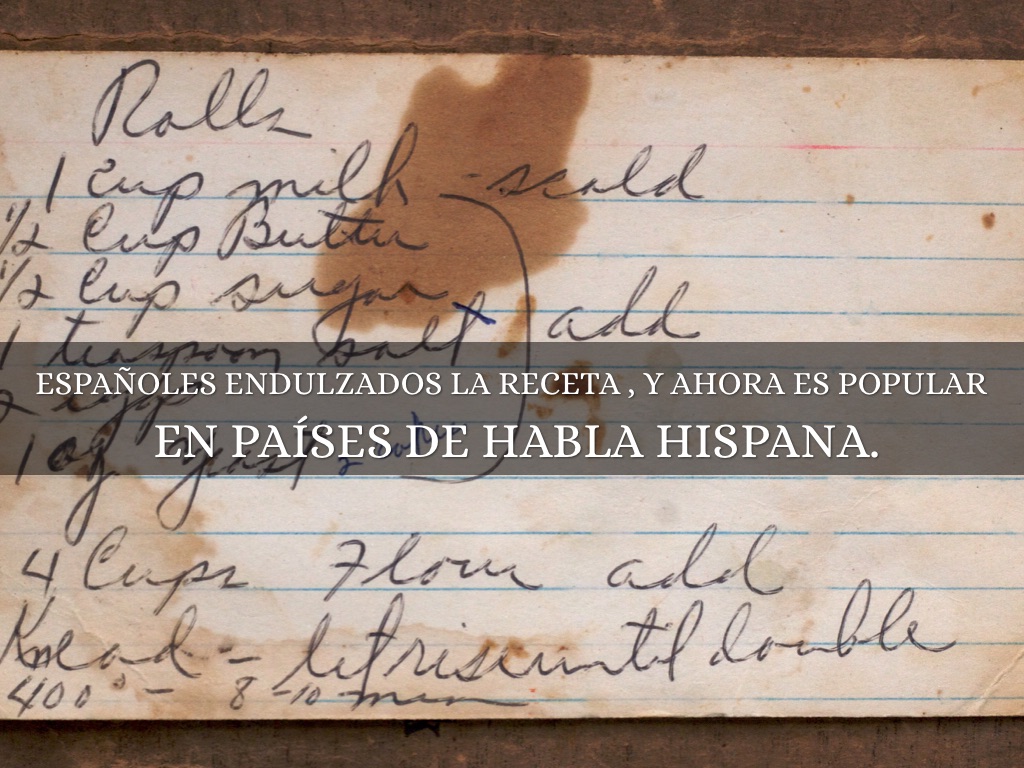 Rolls
1 cup milk - scald
1/2 Cup Butter
1/2 Cup sugar
add
1 teaspoon salt
ESPAÑOLES ENDULZADOS LA RECETA , Y AHORA ES POPULAR
2 eggs
EN PAÍSES DE HABLA HISPANA.
1 og yeast
4 Cups Flour add
Knead - let rise until double
400° - 8-10 min